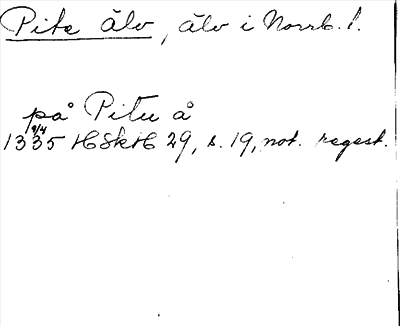 Pite älv, älv i Norrb. l.
på Pitu å
9/4
1335 HSkH 29, s. 19, not. regest.